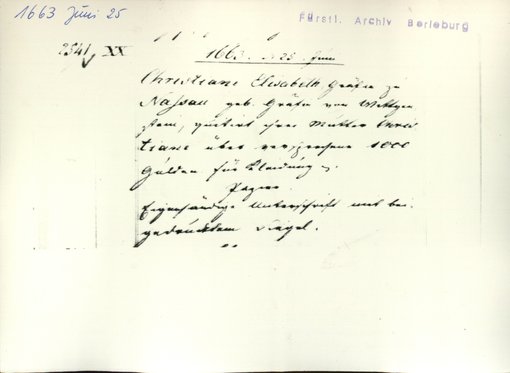 1663 Juni 25
Fürstl. Archiv Berleburg
2541 XX
1663 25 Juni
Christiane Elisabeth Gräfin zu
Nassau geb. Gräfin von Wittgen
stein, quitirt ihrer Mutter Chris
tiane über versprochene 1000
Gulden für Kleidung
Papier
Eigenhändige Unterschrift mit bei-
gedrücktem Siegel.